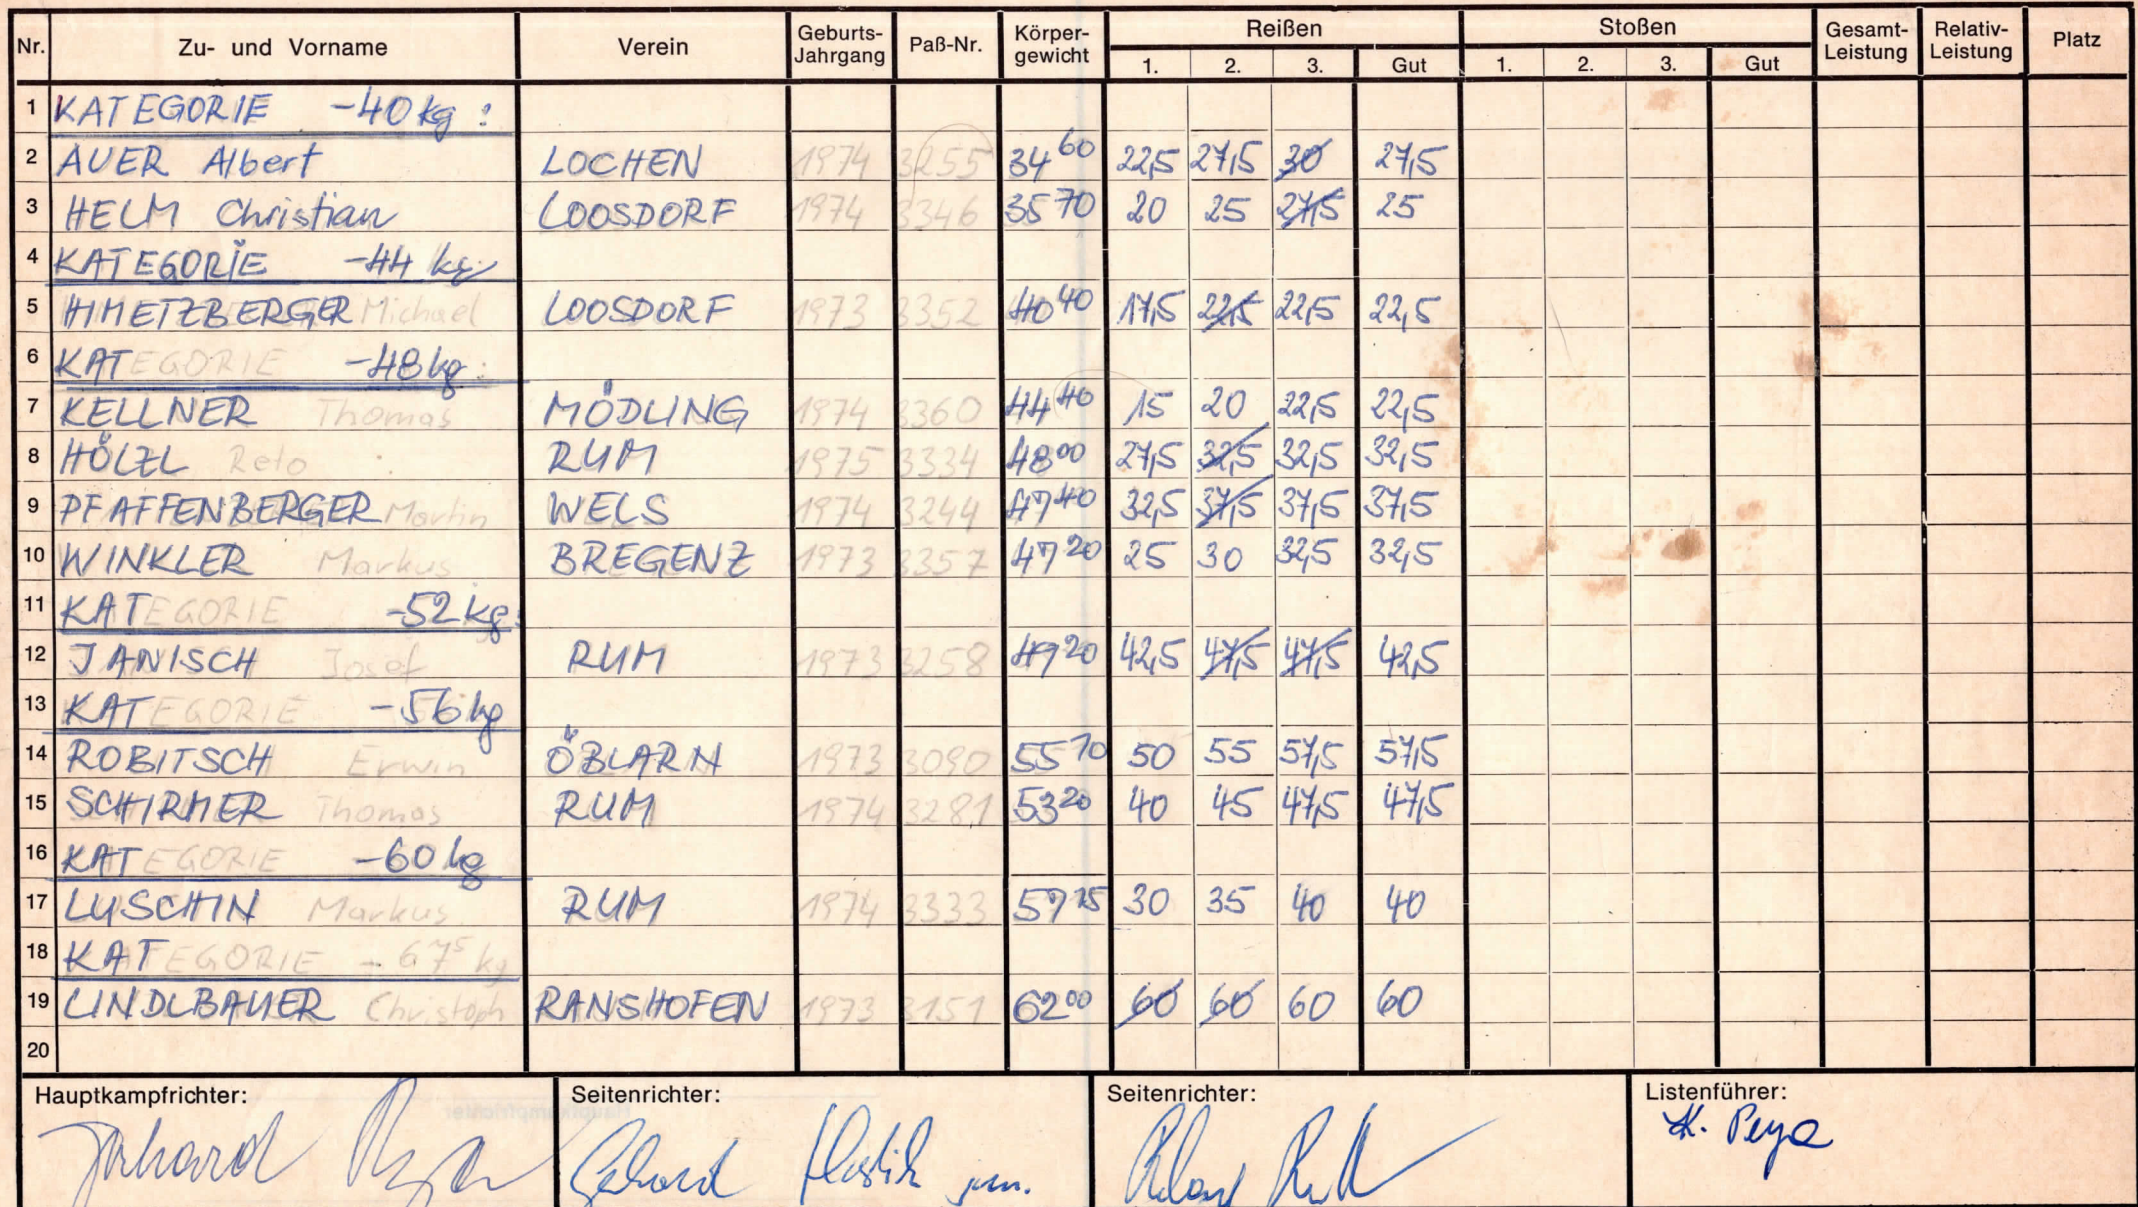 Nr. Zu- und Vorname Verein Geburts-Jahrgang Paß-Nr. Körper-gewicht Reißen Stoßen Gesamt-Leistung Relativ-Leistung Platz
1. 2. 3. Gut 1. 2. 3. Gut
1 KATEGORIE -40 kg:
2 AUER Albert LOCHEN 1974 3255 34 60 22,5 27,5 30 27,5
3 HELM Christian LOOSDORF 1974 3346 35 70 20 25 27,5 25
4 KATEGORIE -44 kg
5 HMETZBERGER Michael LOOSDORF 1973 3352 40 40 17,5 22,5 22,5 22,5
6 KATEGORIE -48 kg:
7 KELLNER Thomas MÖDLING 1974 3360 44 40 15 20 22,5 22,5
8 HÖLZL Reto RUM 1975 3334 48 00 27,5 32,5 32,5 32,5
9 PFAFFENBERGER Martin WELS 1974 3244 47 40 32,5 37,5 37,5 37,5
10 WINKLER Markus BREGENZ 1973 3357 47 20 25 30 32,5 32,5
11 KATEGORIE -52 kg:
12 JANISCH Josef RUM 1973 3258 49 20 42,5 47,5 47,5 42,5
13 KATEGORIE -56 kg
14 ROBITSCH Erwin ÖBLARN 1973 3090 55 70 50 55 57,5 57,5
15 SCHIRMER Thomas RUM 1974 3281 53 20 40 45 47,5 47,5
16 KATEGORIE -60 kg
17 LUSCHIN Markus RUM 1974 3333 57 15 30 35 40 40
18 KATEGORIE - 67 5 kg
19 LINDLBAUER Christoph RANSHOFEN 1973 3151 62 00 60 60 60 60
20
Hauptkampfrichter: Seitenrichter: Seitenrichter: Listenführer:
Gerhard jun. K. Peya